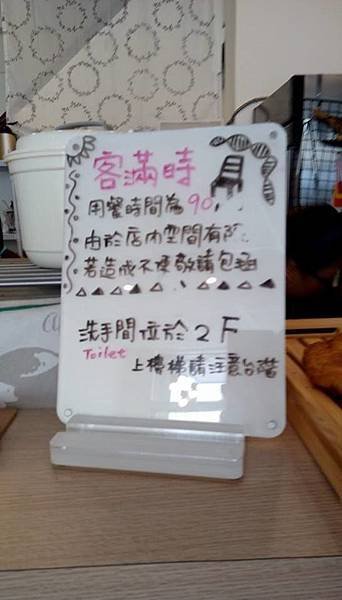 客滿時
用餐時間為90
由於店內空間有限
若造成不便敬請包涵
洗手間位於2F
Toilet
上樓梯請注意台階